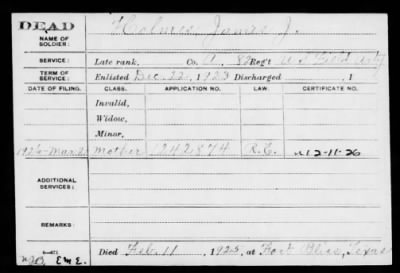 DEAD
NAME OF SOLDIER:
Holmes, James J.
SERVICE:
Late rank, Co. A, 82 Reg't U.S. Field Arty
TERM OF SERVICE:
Enlisted Dec. 22, 1923 Discharged , 1
DATE OF FILING. CLASS. APPLICATION NO. LAW. CERTIFICATE NO.
Invalid,
Widow,
Minor,
1926-Mar. Mother 1242874 R.E. 12-11-26
ADDITIONAL SERVICES:
REMARKS:
E.M.E. Died Feb. 11, 1925, at Fort Bliss, Texas